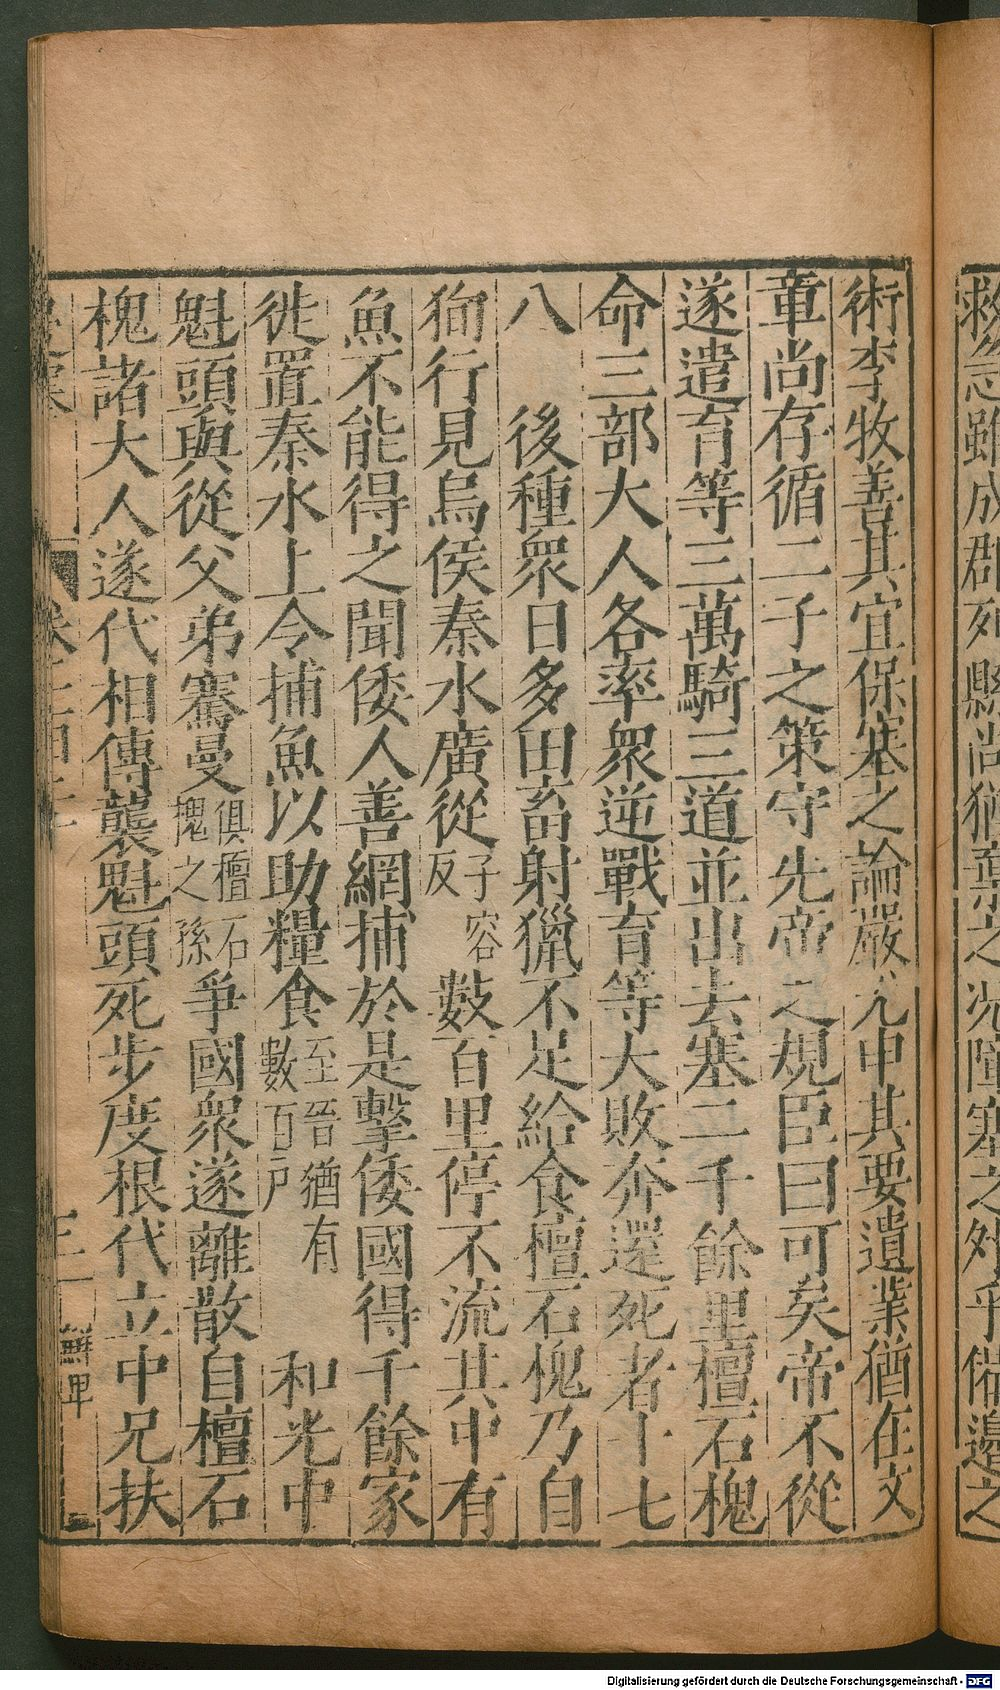 救急雖成郡列縣尚猶棄之况障塞之外乎備邊之
術李牧善其宜保塞之論嚴尤申其要遺業猶在文
章尚存循二子之策守先帝之規臣曰可矣帝不從
遂遣育等三萬騎三道並出去塞二千餘里檀石槐
命三部大人各率衆逆戰育等大敗奔還死者十七
八 後種衆日多田畜射獵不足給食檀石槐乃自
徇行見烏侯秦水廣從子容反數百里停不流其中有
魚不能得之聞倭人善網捕於是擊倭國得千餘家
徙置秦水上令捕魚以助糧食至晉猶有數百戶 和光中
魁頭與從父弟騫曼俱檀石槐之孫爭國衆遂離散自檀石
槐諸大人遂代相傳襲魁頭死步度根代立中兄扶
鮮卑
Digitalisierung gefördert durch die Deutsche Forschungsgemeinschaft - DFG